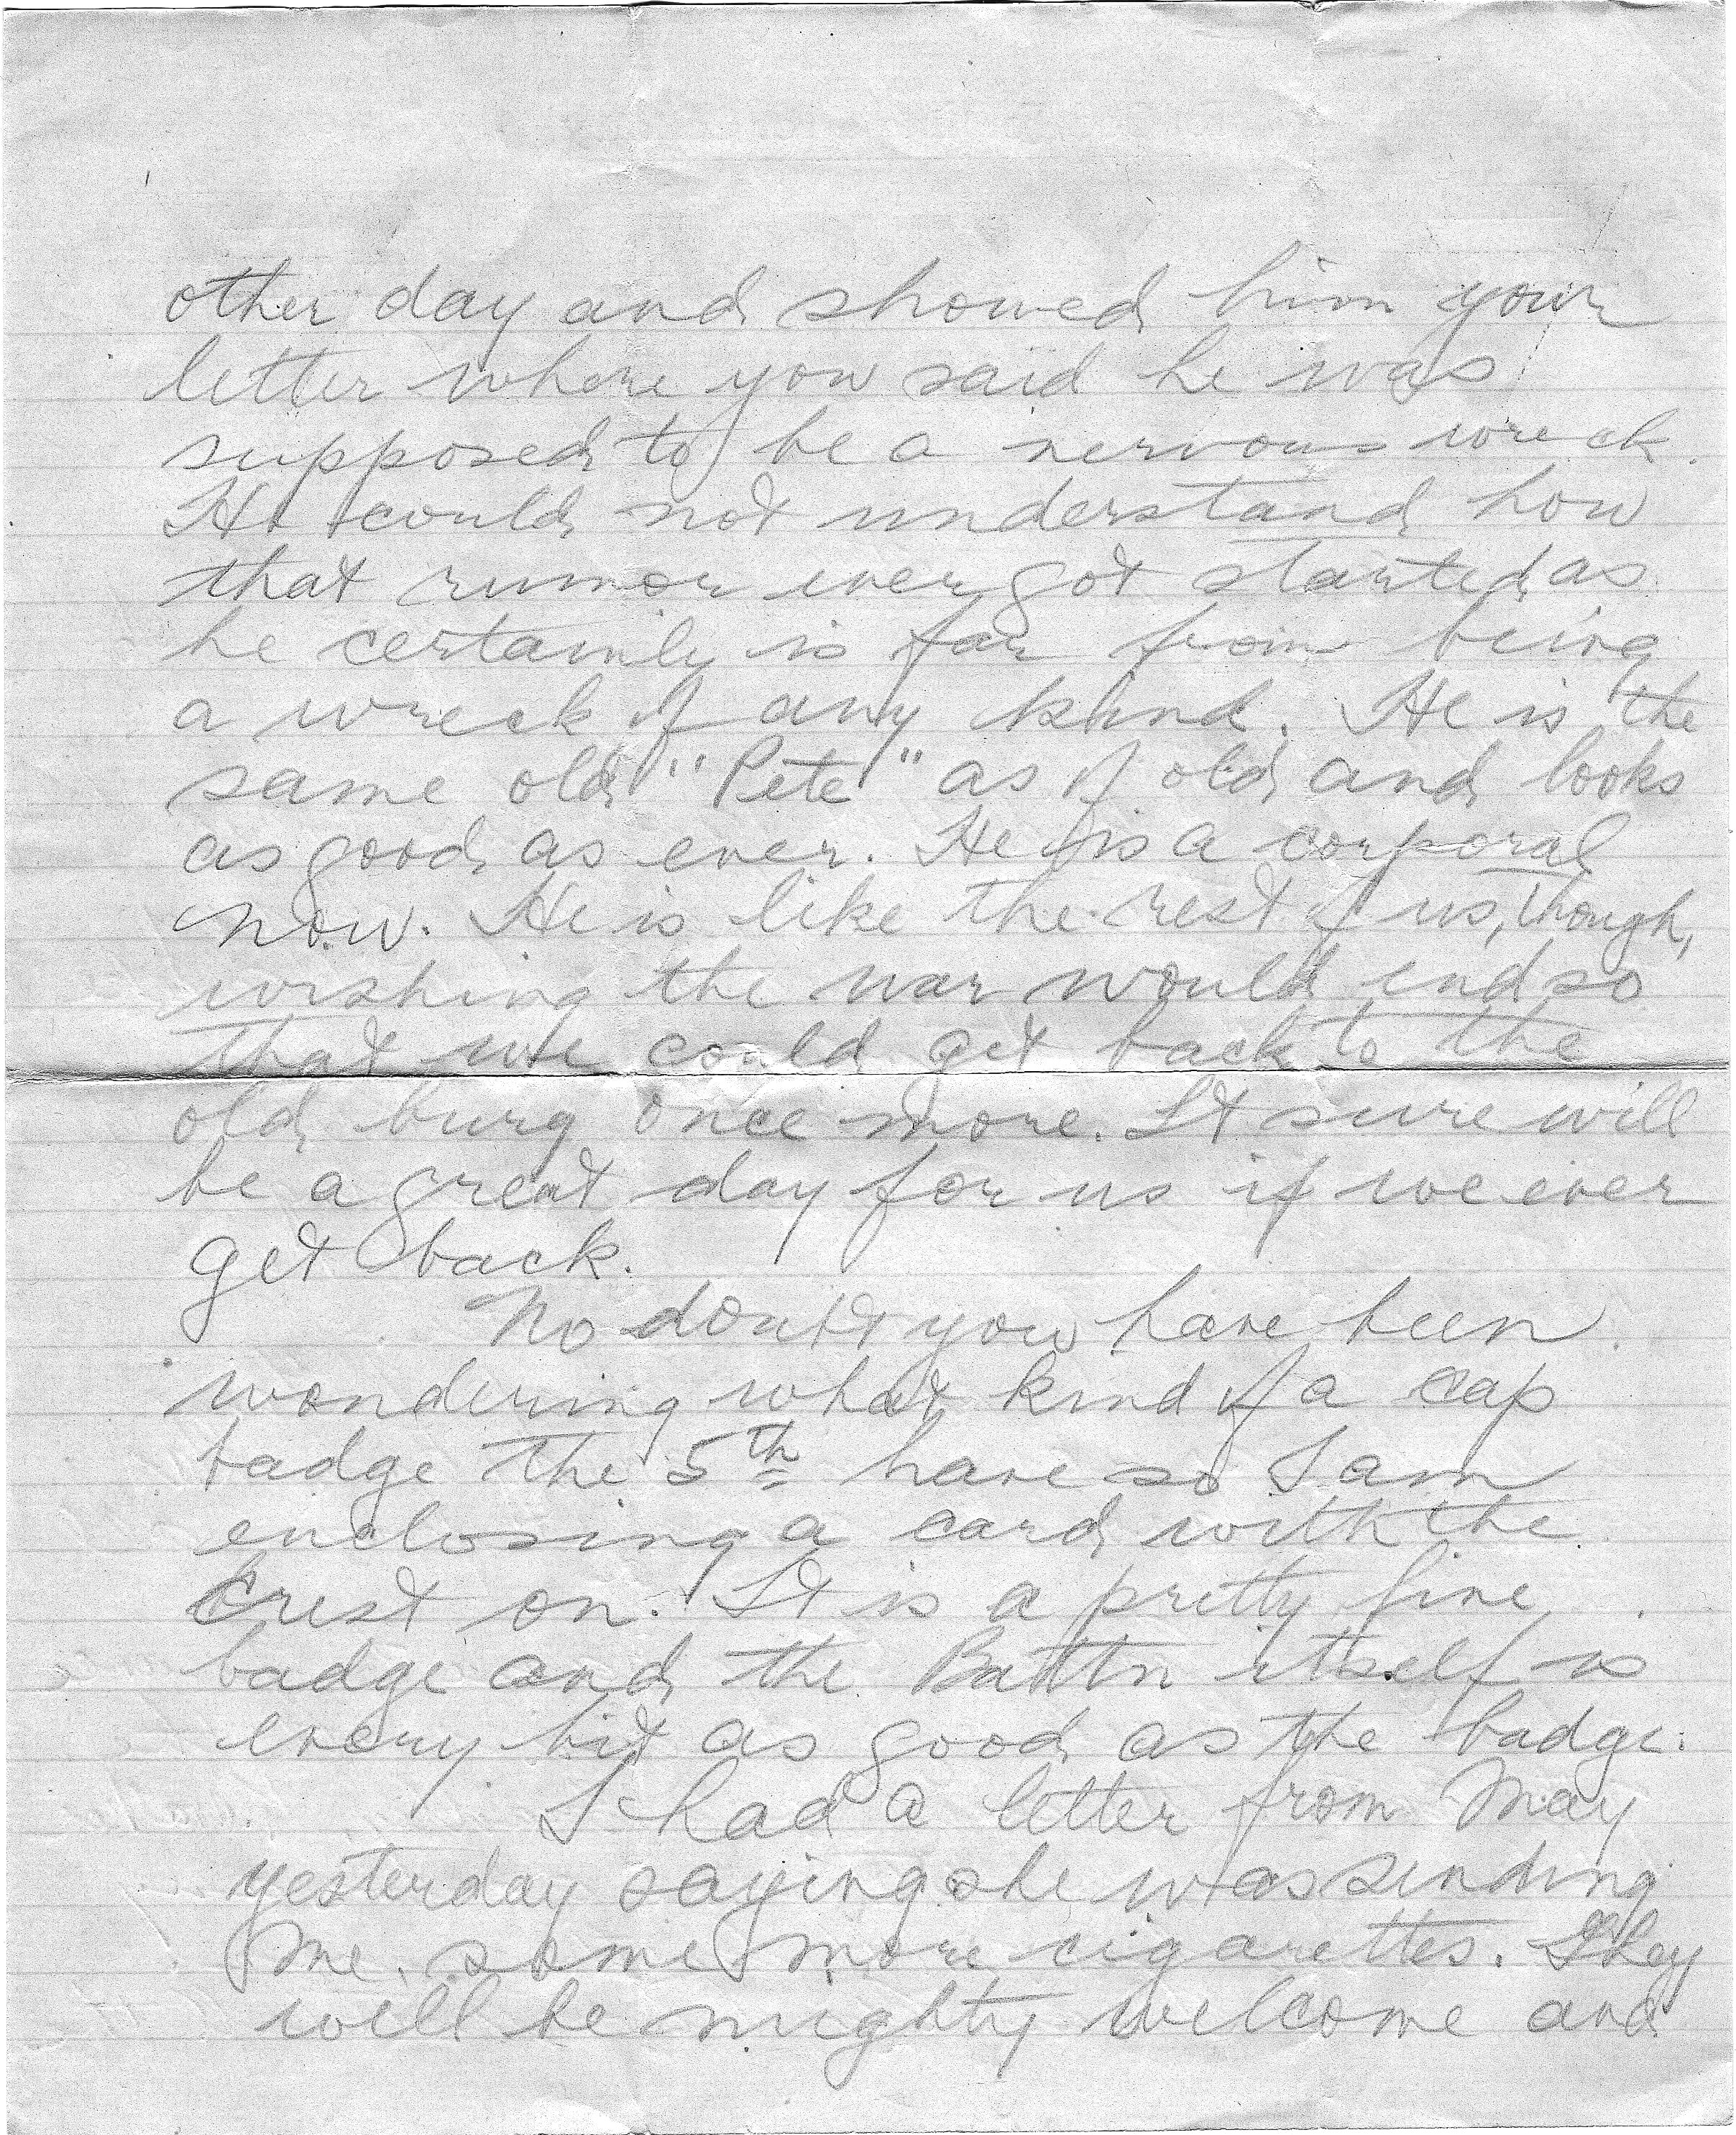 other day and showed him your
letter where you said he was
supposed to be a nervous wreck.
He could not understand how
that rumor ever got started as
he certainly is far from being
a wreck of any kind. He is the
same old "Pete" as of old and looks
as good as ever. He is a corporal
now. He is like the rest of us, though,
wishing the war would end so
that we could get back to the
old burg once more. It sure will
be a great day for us if we ever
get back.
No doubt you have been
wondering what kind of a cap
badge the 5th have so I am
enclosing a card with the
crest on. It is a pretty fine
badge and the Battn itself is
every bit as good as the badge.
I had a letter from May
yesterday saying she was sending
me some more cigarettes. They
will be mighty welcome and